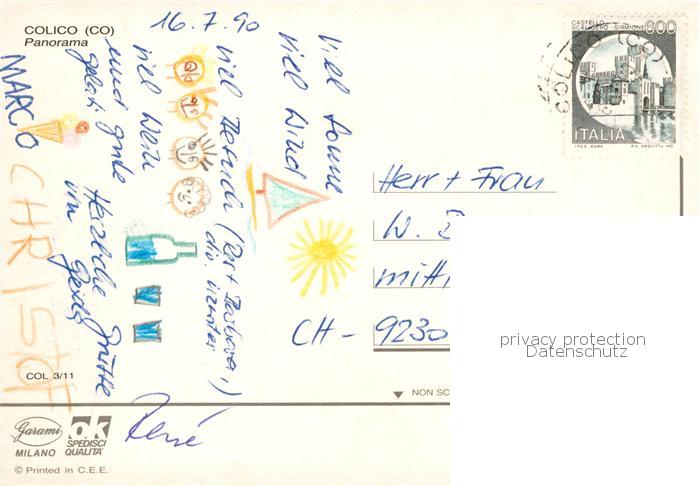 COLICO (CO)
Panorama
16.7.90
viel Sonne
viel Wind
viel Besuch (
div.
viel Wein
und gute
gelati
Herzliche Grüsse
MARCO
CHRISTOF
René
Herr + Frau
W.
CH - 9230
CASTELLO
SCALIGERO - SIRMIONE
600
ITALIA
I.P.Z.S. ROMA
COLICO (CO)
privacy protection
Datenschutz
COL 3/11
NON SC
Garami
MILANO
ok
SPEDISCI
QUALITÀ
© Printed in C.E.E.